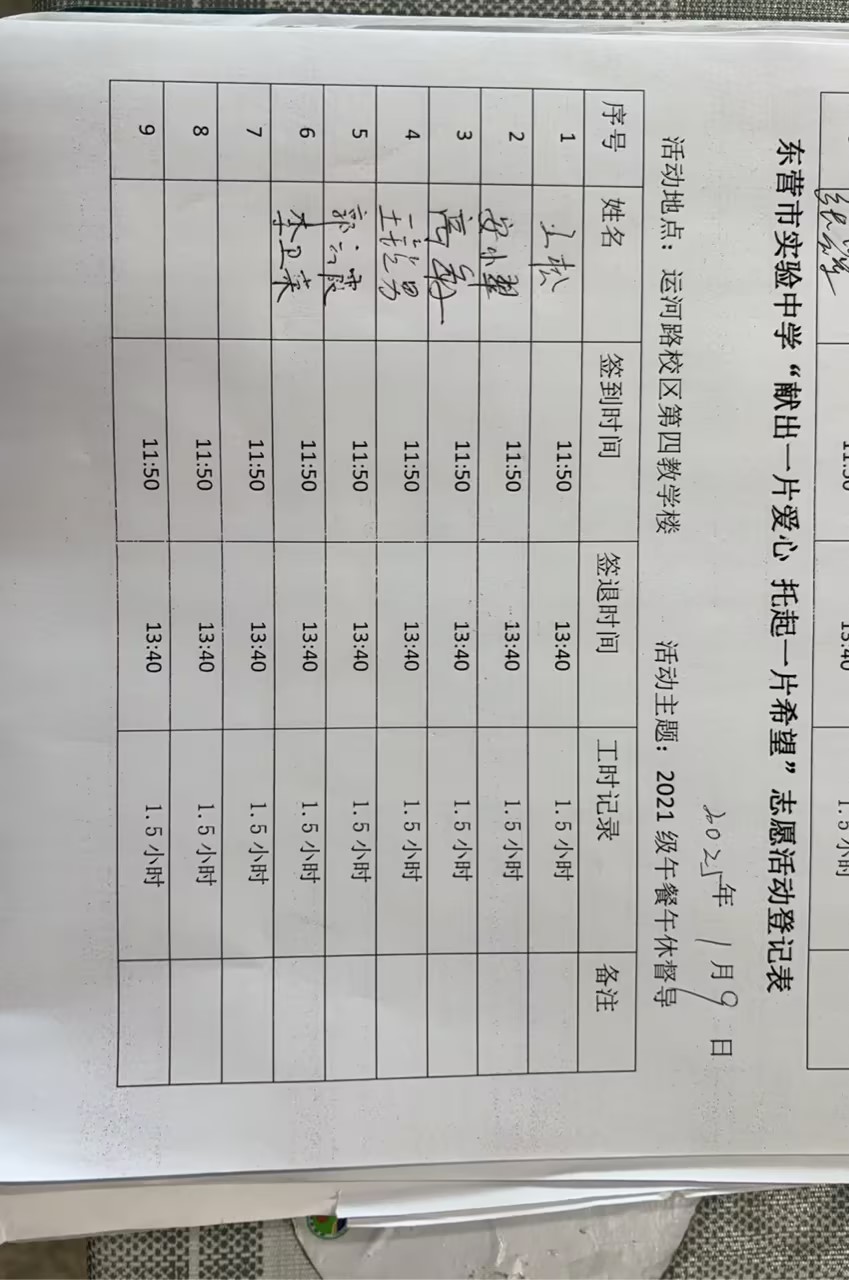 11:50 13:40 1.5小时
东营市实验中学“献出一片爱心 托起一片希望”志愿活动登记表
2025年 1月9日
活动地点：运河路校区第四教学楼 活动主题：2021级午餐午休督导
序号 姓名 签到时间 签退时间 工时记录 备注
1 王松 11:50 13:40 1.5小时
2 安小翠 11:50 13:40 1.5小时
3 高 11:50 13:40 1.5小时
4 王 11:50 13:40 1.5小时
5 郭 霞 11:50 13:40 1.5小时
6 卫 11:50 13:40 1.5小时
7 11:50 13:40 1.5小时
8 11:50 13:40 1.5小时
9 11:50 13:40 1.5小时